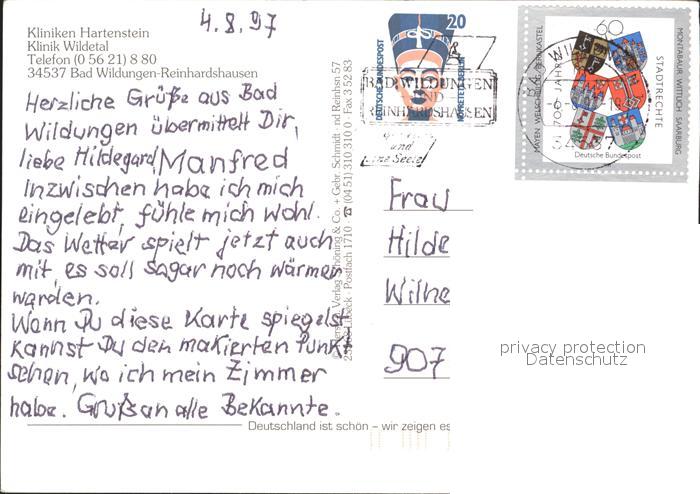 4.8.97
Kliniken Hartenstein
Klinik Wildetal
Telefon (0 56 21) 8 80
34537 Bad Wildungen-Reinhardshausen
Herzliche Grüße aus Bad
Wildungen übermittelt Dir,
liebe Hildegard, Manfred
Inzwischen habe ich mich
eingelebt, fühle mich wohl.
Das Wetter spielt jetzt auch
mit, es soll sogar noch wärmer
warden.
Wann Du diese Karte spiegelst
kannst Du den makierten Punkt
sehen, wo ich mein Zimmer
habe. Gruß an alle Bekannte.
Deutschland ist schön – wir zeigen es
Verlag Schöning & Co. + Gebr. Schmidt
Postfach 1710 ☎ (04 51) 310 310 · Fax 3 52 83
DEUTSCHE BUNDESPOST
20
BAD WILDUNGEN
UND
REINHARDSHAUSEN
und
Seele
60
MAYEN WELSCHBILLIG BERNKASTEL
MONTABAUR WITTLICH SAARBURG
700 JAHRE
STADTRECHTE
Deutsche Bundespost
Frau
Hilde
Wilhe
907
privacy protection
Datenschutz